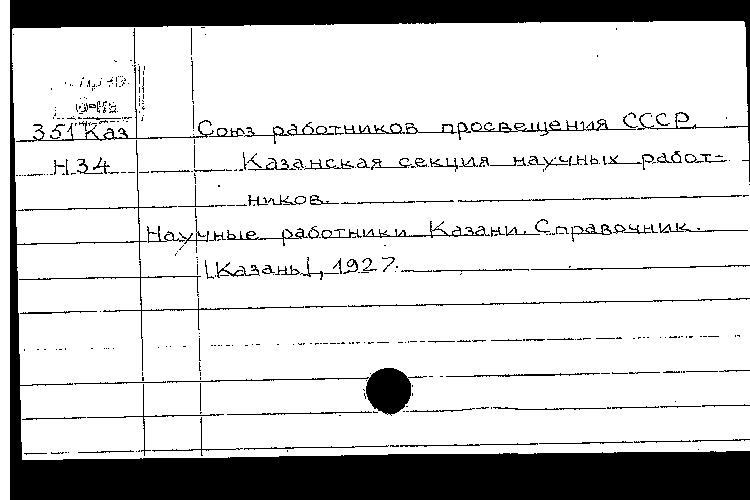 351 Каз
Союз работников просвещения СССР.
Н34
Казанская секция научных работ-
ников.
Научные работники Казани. Справочник.
[Казань], 1927.